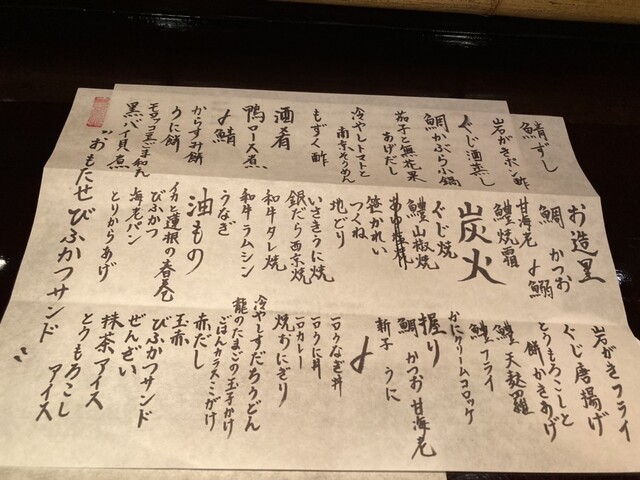 鯖ずし
岩がきポン酢
ぐじ酒蒸し
鯛かぶら小鍋
茄子と無花果
あげだし
冷やしトマトと
南京そうめん
もずく酢
酒肴
鴨ロース煮
〆鯖
からすみ餅
うに餅
モロッコ豆ごま和え
黒バイ貝煮
お造里
鯛 かつお
甘海老 〆鰯
鱧焼霜
炭火
ぐじ焼
鱧山椒焼
笹かれい
つくね
地どり
いさきうに焼
銀だら西京焼
和牛タレ焼
和牛ラムシン
うなぎ
油もの
イカと蓮根の春巻
びふかつ
海老パン
とりからあげ
岩がきフライ
ぐじ唐揚げ
とうもろこしと
餅かきあげ
鱧天麩羅
鱧フライ
かにクリームコロッケ
握り
鯛 かつお 甘海老
新子 うに
〆
一口うなぎ丼
一口うに丼
一口カレー
焼おにぎり
冷やしすだちうどん
龍のたまごの玉子かけ
ごはんカラスミがけ
赤だし
玉赤
びふかつサンド
ぜんざい
抹茶アイス
とうもろこし
アイス
おもたせびふかつサンド